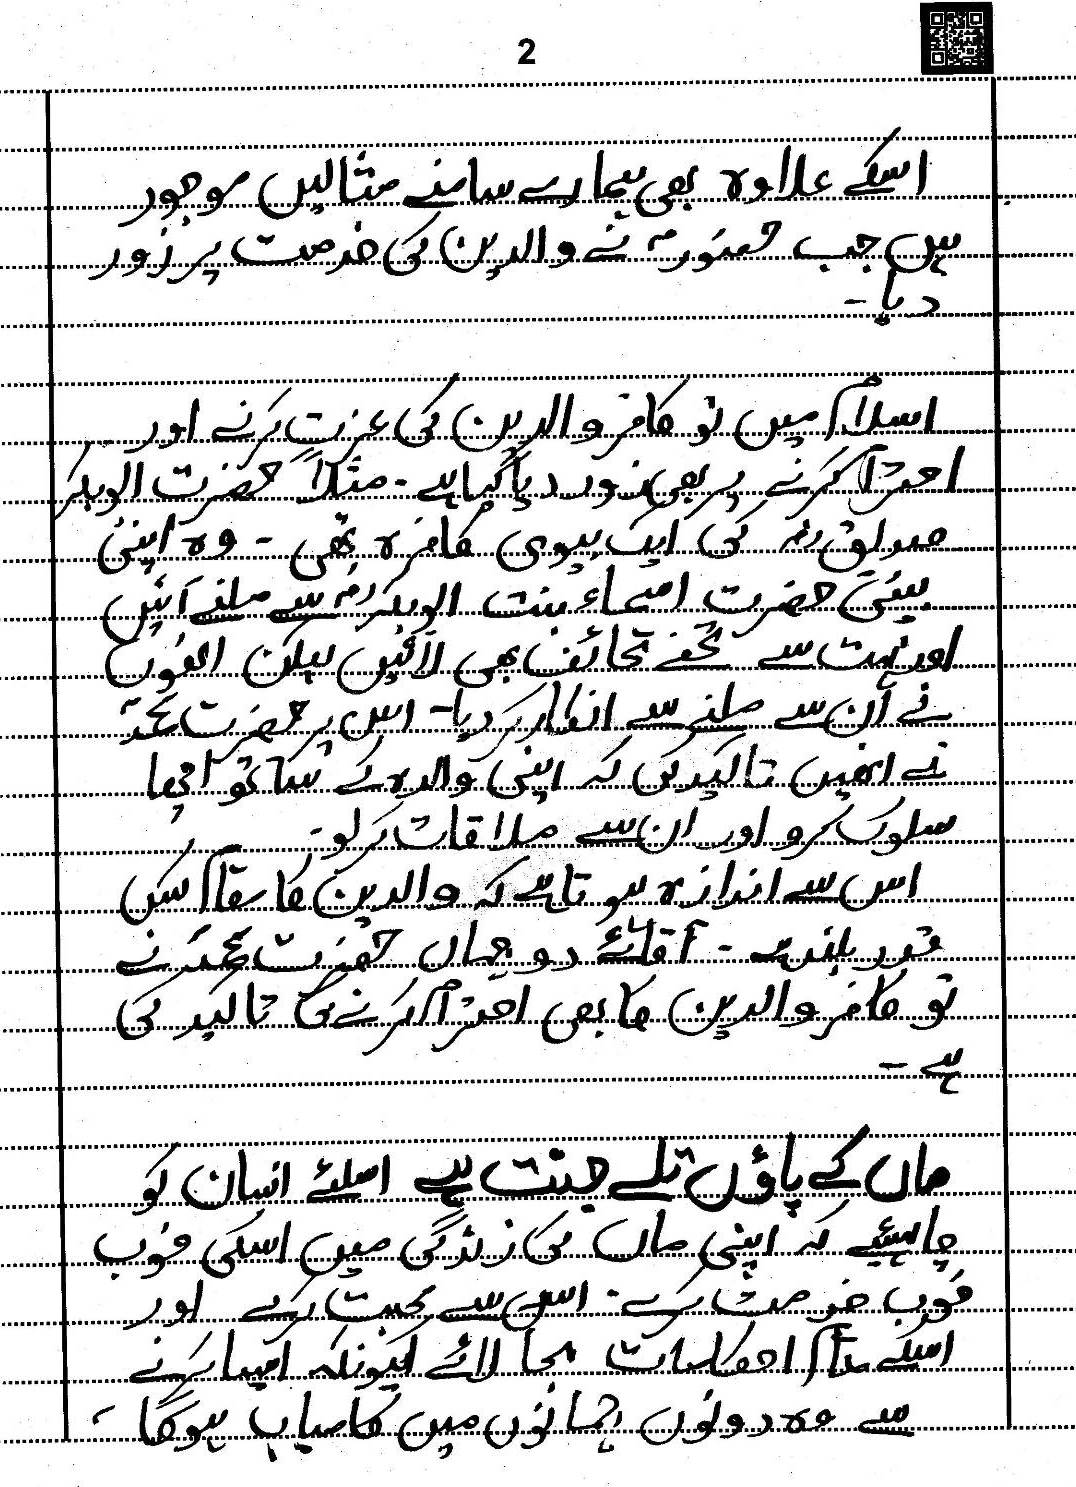 2
اسکے علاوہ بھی ہمارے سامنے مثالیں موجود
ہیں جب حضورؐ نے والدین کی خدمت پر زور
دیا۔
اسلام میں تو کافر والدین کی عزت کرنے اور
احترام کرنے پر بھی زور دیا گیا ہے۔ مثلاً حضرت ابوبکر
صدیقؓ کی ایک بیوی کافرہ تھی ۔ وہ اپنی
بیٹی حضرت اسماء بنت ابوبکرؓ سے ملنے آئیں
اور بہت سے تحفے تحائف بھی لائیں لیکن انھوں
نے اُن سے ملنے سے انکار کر دیا۔ اس پر حضرت محمدؐ
نے انھیں تاکید کی کہ اپنی والدہ کے ساتھ اچھا
سلوک کرو اور ان سے ملاقات کر لو۔
اس سے اندازہ ہوتا ہے کہ والدین کا مقام کس
قدر بلند ہے ۔ آقائے دو جہاں حضرت محمدؐ نے
تو کافر والدین کا بھی احترام کرنے کی تاکید کی
ہے ۔
ماں کے پاؤں تلے جنت ہے اسلئے انسان کو
چاہیئے کہ اپنی ماں کی زندگی میں اسکی خوب
خوب خدمت کرے۔ اس سے محبت کرے اور
اسکے تمام احکامات بجا لائے کیونکہ ایسا کرنے
سے وہ دونوں جہانوں میں کامیاب ہوگا ۔